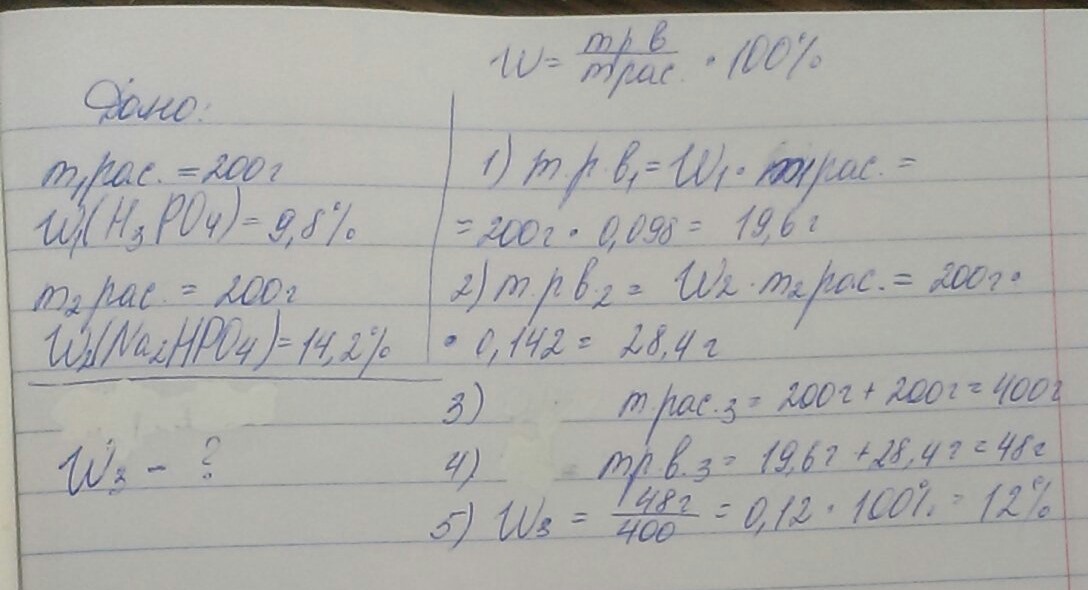 W = m р в / m рас. · 100%
Дано:
m₁ рас. = 200г
W₁(H₃PO₄) = 9,8%
m₂ рас. = 200г
W₂(Na₂HPO₄) = 14,2%
W₃ - ?
1) m.р.в₁ = W₁ · m₁ рас. =
= 200г · 0,098 = 19,6 г
2) m.р.в.₂ = W₂ · m₂ рас. = 200г ·
· 0,142 = 28,4 г
3) m.рас.₃ = 200г + 200г = 400г
4) = mр.в.₃ = 19,6 г + 28,4 г = 48г
5) W₃ = 48г / 400 = 0,12 · 100% = 12%